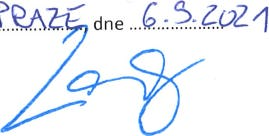 PRAZE, dne 6.9.2021